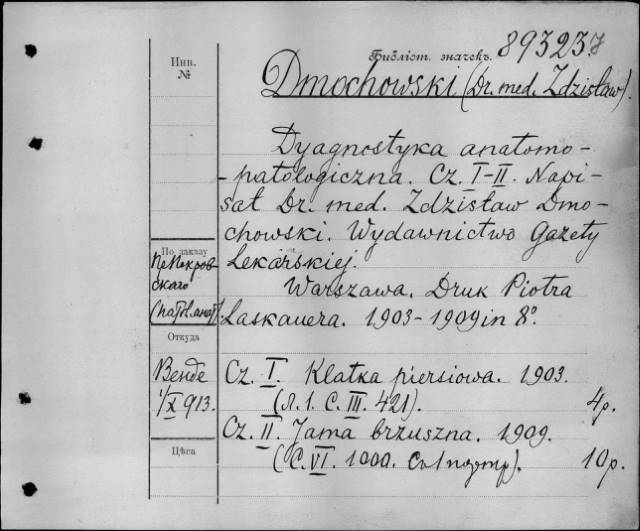 Библіот. значекъ. 893237
Инв.
№
Dmochowski (Dr. med. Zdzisław).
Dyagnostyka anatomo-
-patologiczna. Cz. I-II. Napi-
sał Dr. med. Zdzisław Dmo-
chowski. Wydawnictwo Gazety
Lekarskiej.
Warszawa. Druk Piotra
Laskauera. 1903-1909 in 8º.
По заказу
Покров-
скаго
Откуда
Bende
1/X 913.
Cz. I. Klatka piersiowa. 1903.
(C. III. 421). 4р.
Cz. II. Jama brzuszna. 1909.
(C. VI. 1000.). 10р.
Цѣса